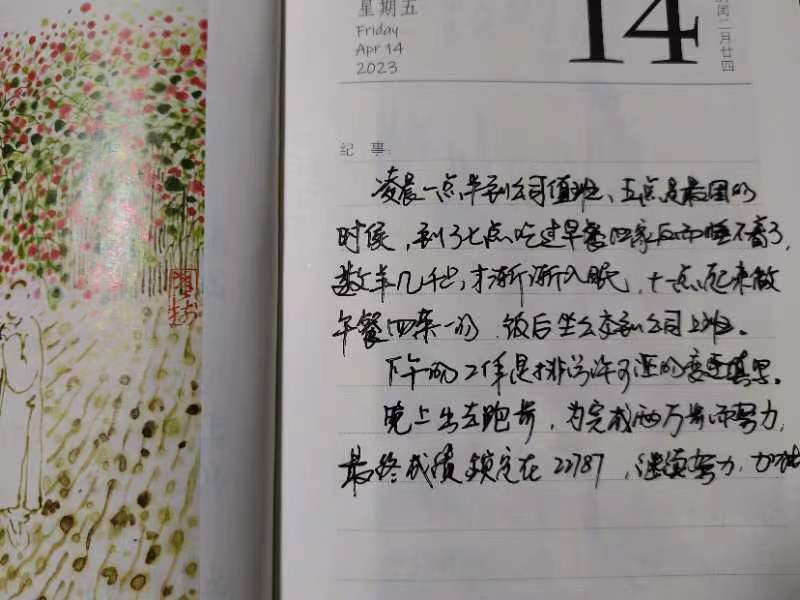 星期五
Friday
Apr 14
2023
14
闰二月廿四
纪 事:
凌晨一点半到公司值班、五点是最困的
时候，到了七点吃过早餐回家反而睡不着了，
数羊几千只，才渐渐入眠，十一点起来做
午餐四菜一汤，饭后坐公交到公司上班。
下午的工作是排污许可证的变更填报。
晚上出去跑步，为完成两万步而努力，
最终成绩锁定在22787，继续努力，加油